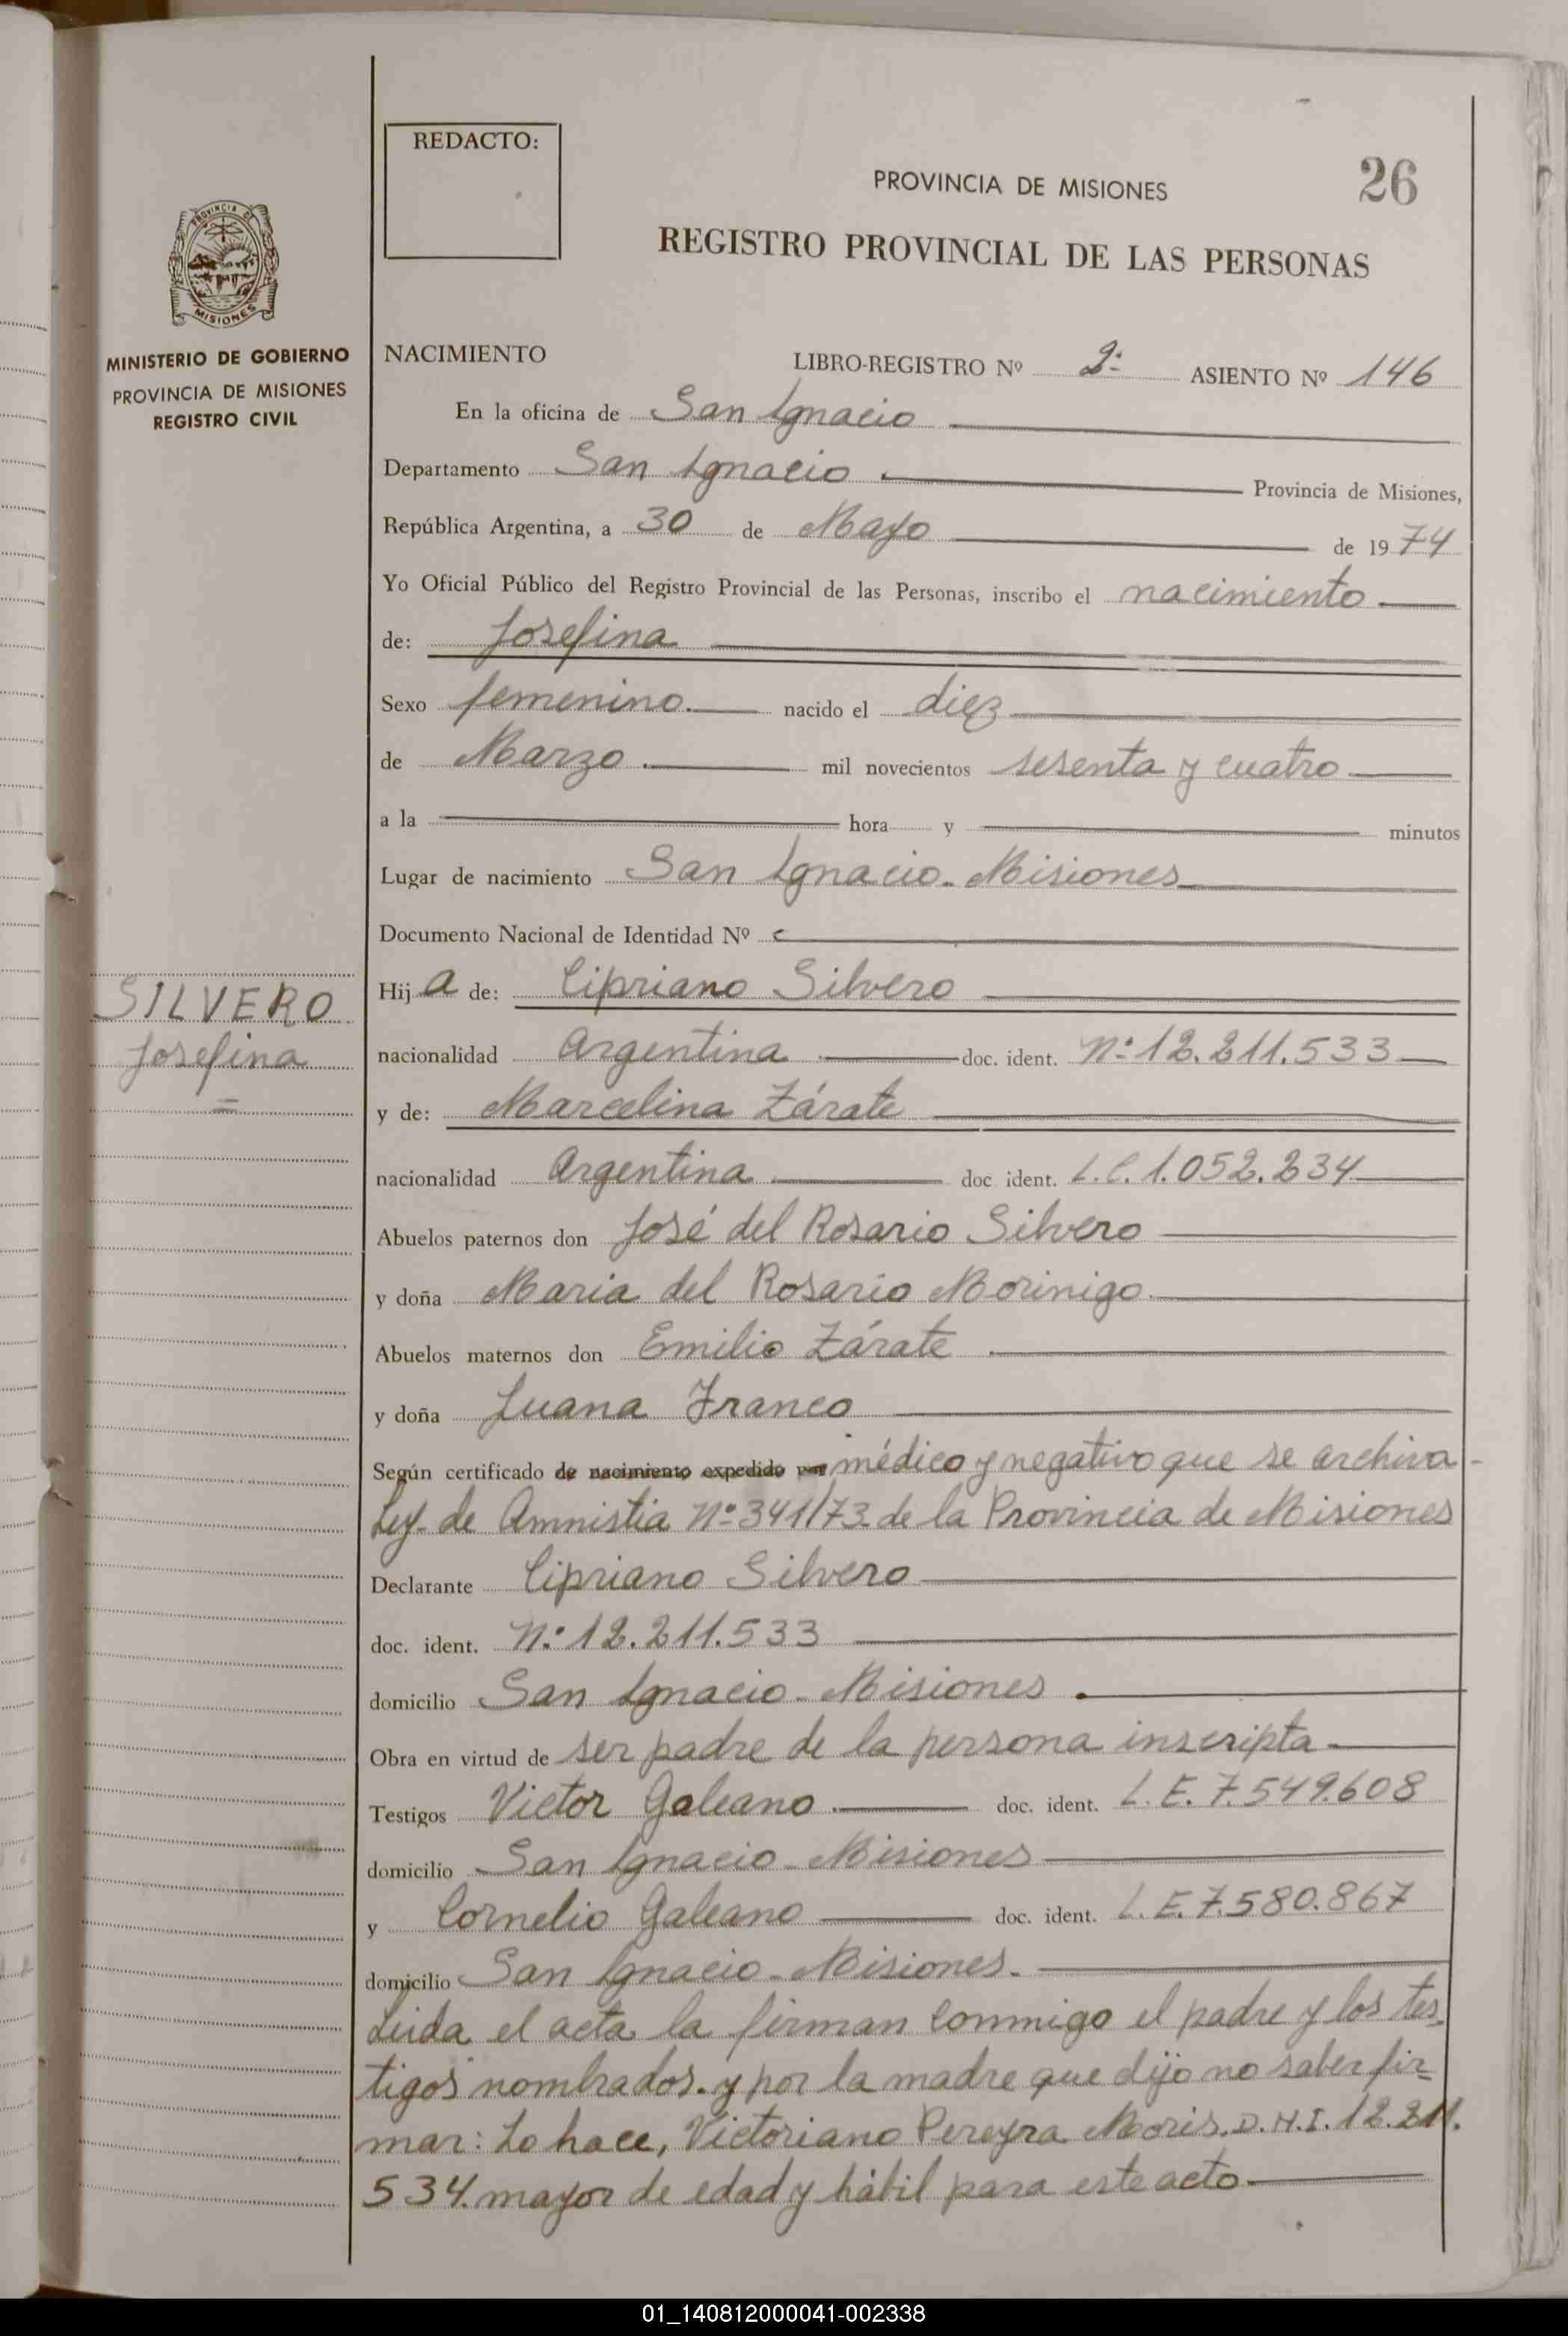 REDACTO:
PROVINCIA DE MISIONES
26
REGISTRO PROVINCIAL DE LAS PERSONAS
PROVINCIA DE
MISIONES
MINISTERIO DE GOBIERNO
PROVINCIA DE MISIONES
REGISTRO CIVIL
NACIMIENTO LIBRO-REGISTRO Nº 2º ASIENTO Nº 146
En la oficina de San Ignacio
Departamento San Ignacio Provincia de Misiones,
República Argentina, a 30 de Mayo de 1974
Yo Oficial Público del Registro Provincial de las Personas, inscribo el nacimiento
de: Josefina
Sexo femenino. nacido el diez
de Marzo. mil novecientos sesenta y cuatro
a la hora y minutos
Lugar de nacimiento San Ignacio- Misiones
Documento Nacional de Identidad Nº
SILVERO
Josefina
Hija de: Cipriano Silvero
nacionalidad Argentina doc. ident. Nº 12.211.533
y de: Marcelina Zárate
nacionalidad Argentina doc. ident. L.C. 1.052.234
Abuelos paternos don José del Rosario Silvero
y doña Maria del Rosario Morinigo.
Abuelos maternos don Emilio Zárate
y doña Juana Franco
Según certificado de nacimiento expedido por médico y negativo que se archiva-
Ley de Amnistia Nº 341/73 de la Provincia de Misiones
Declarante Cipriano Silvero
doc. ident. Nº 12.211.533
domicilio San Ignacio- Misiones.
Obra en virtud de ser padre de la persona inscripta-
Testigos Victor Galeano. doc. ident. L.E. 7.549.608
domicilio San Ignacio- Misiones
y Cornelio Galeano doc. ident. L.E. 7.580.867
domicilio San Ignacio- Misiones.
Leida el acta la firman conmigo el padre y los tes-
tigos nombrados. y por la madre que dijo no saber fir=
mar: Lo hace, Victoriano Pereyra Moris. D.N.I. 12.211.
534. mayor de edad y hábil para este acto-
01_140812000041-002338